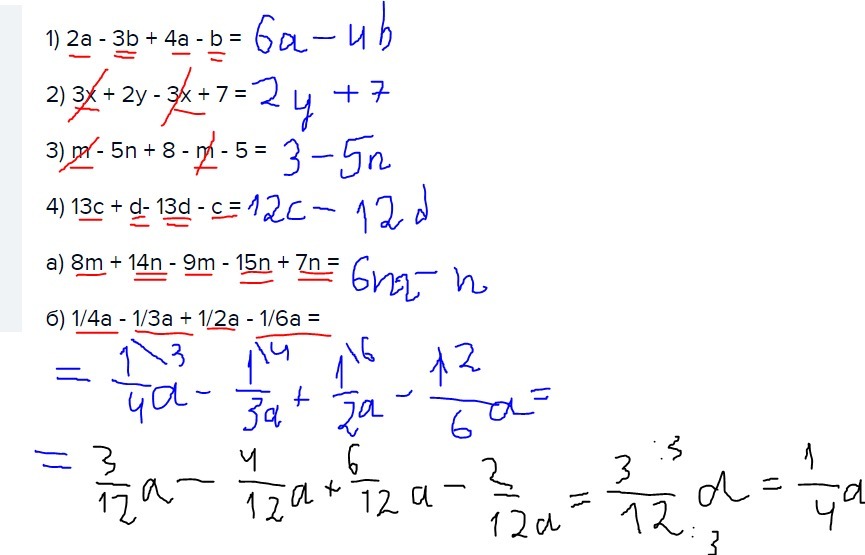 1) 2a - 3b + 4a - b = 6a - 4b
2) 3x + 2y - 3x + 7 = 2y + 7
3) m - 5n + 8 - m - 5 = 3 - 5n
4) 13c + d- 13d - c = 12c - 12d
а) 8m + 14n - 9m - 15n + 7n =
б) 1/4a - 1/3a + 1/2a - 1/6a =
= 1\3/4 a - 1\4/3 a + 1\6/2 a - 1 2/6 a =
= 3/12 a - 4/12 a + 6/12 a - 2/12 a = 3 :3/12 :3 a = 1/4 a